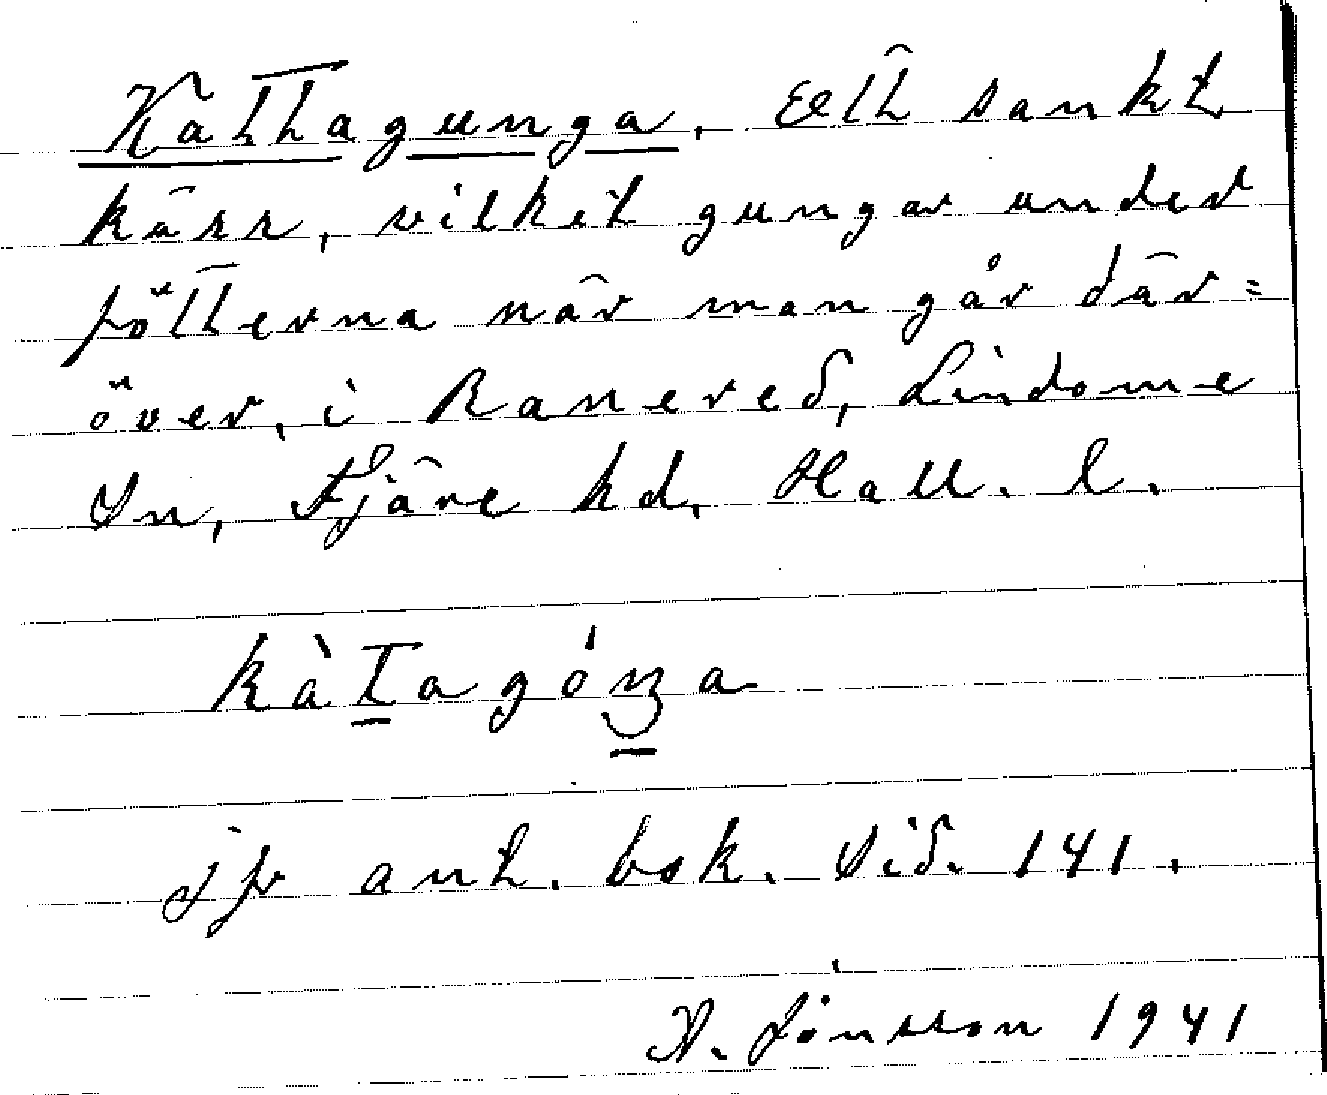 Kattagunga. Ett sankt
kärr, vilket gungar under
fötterna när man går där=
över, i Ranered, Lindome
Sn, Fjäre hd, Hall. l.
kàtagóŋa
jfr ant. bok. Sid. 141.
N. Jönsson 1941